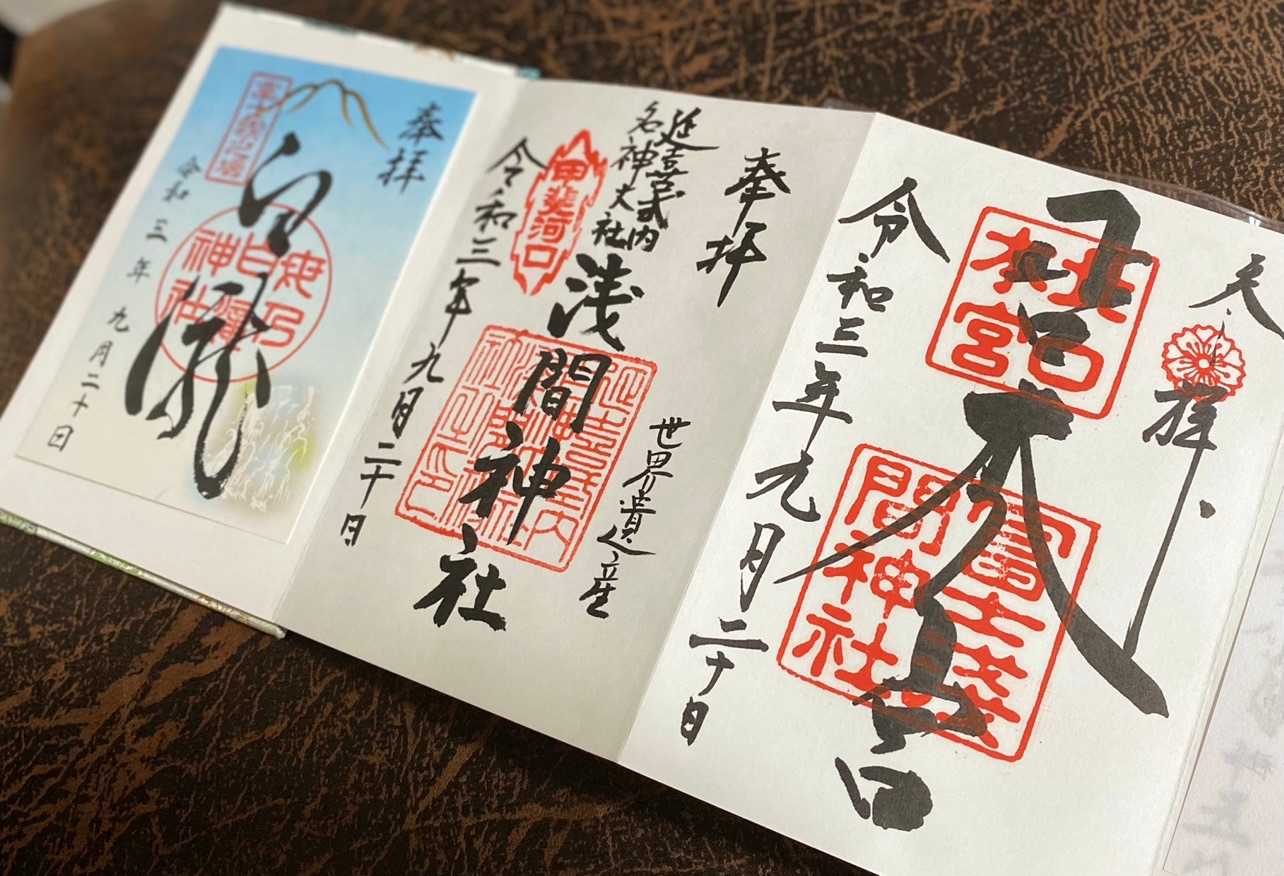 奉拝
北口本宮
北口
本宮
冨士淺
間神社
令和三年九月二十日
奉拝
世界遺産
延喜式内
名神大社
浅間神社
甲斐河口
令和三年九月二十日
奉拝
白瀧
母乃
白瀧
神社
令和三年九月二十日